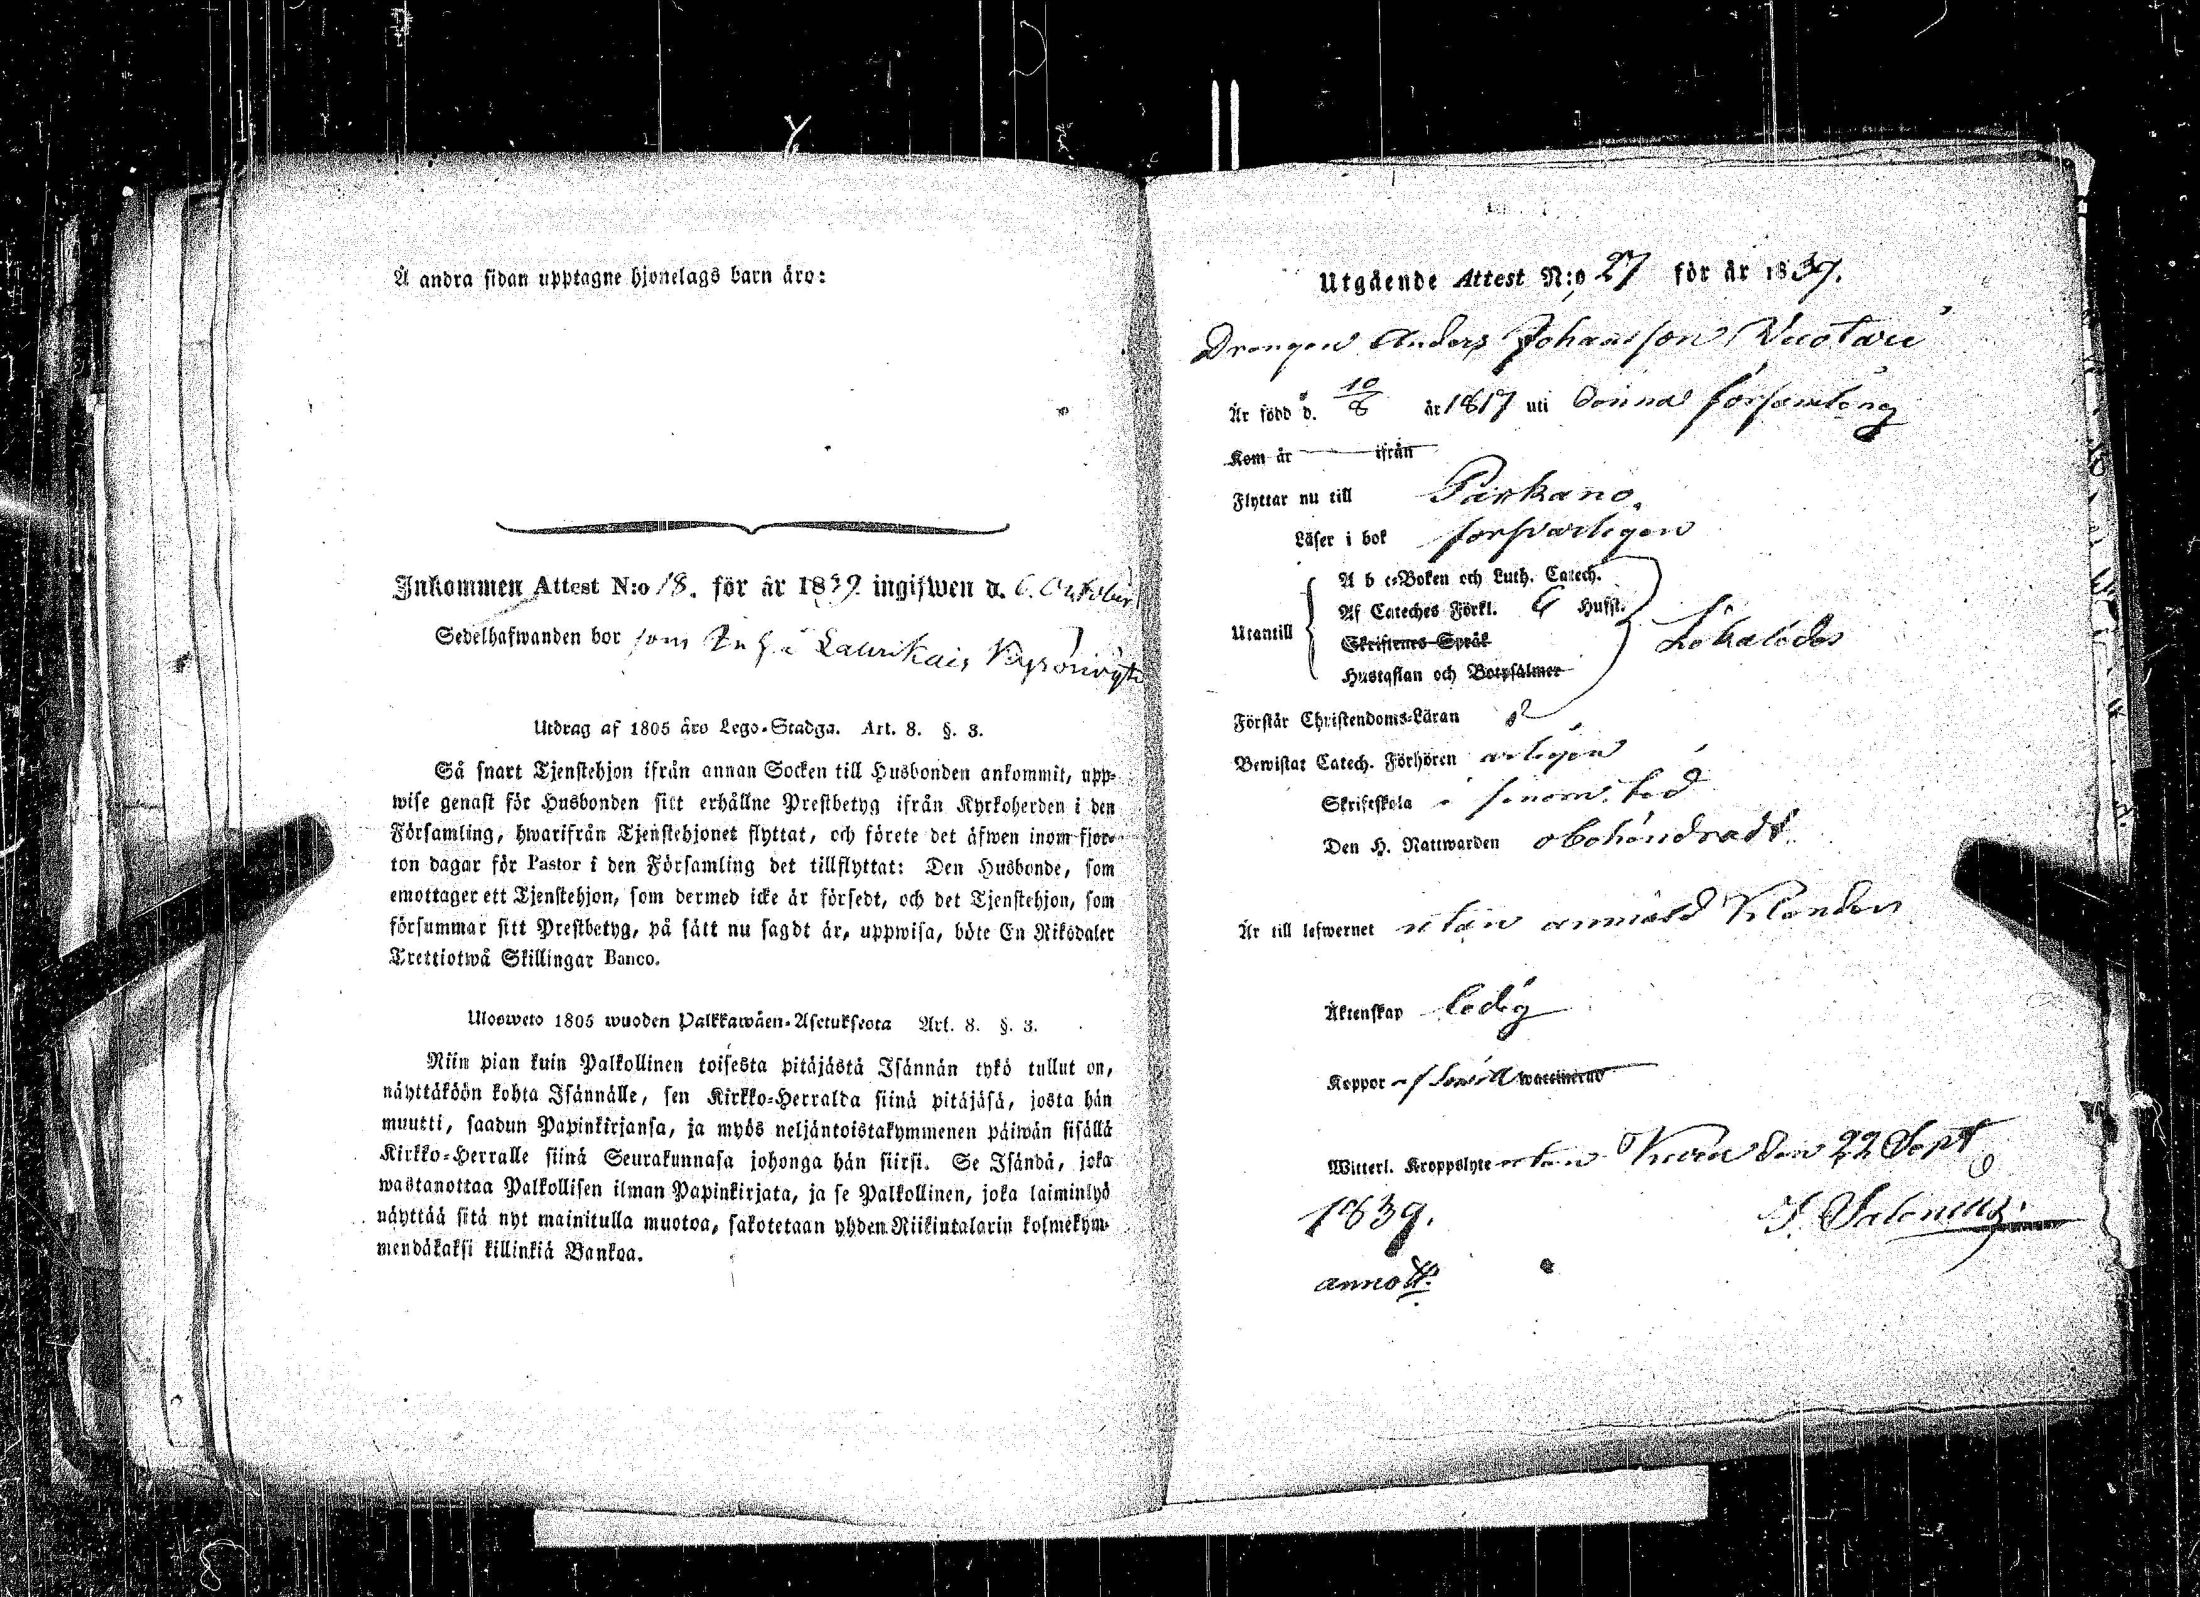 Å andra sidan upptagne hjonelags barn äro:
Inkommen Attest N:o 18. för år 1839 ingifwen d. 6. October
Sedelhafwanden bor som
Utdrag af 1805 års Lego-Stadga. Art. 8. §. 3.
Så snart Tjenstehjon ifrån annan Socken till Husbonden ankommit, upp-
wise genast för Husbonden sitt erhållne Prestbetyg ifrån Kyrkoherden i den
Församling, hwarifrån Tjenstehjonet flyttat, och förete det äfwen inom fjor-
ton dagar för Pastor i den Församling det tillflyttat: Den Husbonde, som
emottager ett Tjenstehjon, som dermed icke är försedt, och det Tjenstehjon, som
försummar sitt Prestbetyg, på sätt nu sagdt är, uppwisa, böte En Riksdaler
Trettiotwå Skillingar Banco.
Ulosweto 1805 wuoden Palkkawäen-Asetuksesta Art. 8. §. 3.
Niin pian kuin Palkollinen toisesta pitäjästä Isännän tykö tullut on,
näyttäköön kohta Isännälle, sen Kirkko-Herralda siinä pitäjäsä, josta hän
muutti, saadun Papinkirjansa, ja myös neljäntoistakymmenen päiwän sisällä
Kirkko-Herralle siinä Seurakunnasa johonga hän siirsi. Se Isändä, joka
wastanottaa Palkollisen ilman Papinkirjata, ja se Palkollinen, joka laiminlyö
näyttää sitä nyt mainitulla muotoa, sakotetaan yhden Riikintalarin kolmekym-
mendäkaksi killinkiä Bankoa.
Utgående Attest N:o 27 för år 1839.
Drengen Anders Johansson
Är född d. 10/8 år 1817 uti denna församling
Kom år ifrån
Flyttar nu till Parkano
Läser i bok forsvarligen
Utantill
A b c-Boken och Luth. Catech.
Af Cateches Förkl. 6 Hufst.
Skriftenes Språk
Hustaflan och Botpsalmer
Likaledes
Förstår Christendoms-Läran
Bewistat Catech. Förhören arligen
Skriftskola i sinom tid
Den H. Nattwarden obehindradt.
Är till lefwernet utan anmäld klander
Äktenskap ledig
Koppor wattinerad
Witterl. Kroppslyte utan den 22 Sept
1839. J. Salenius.